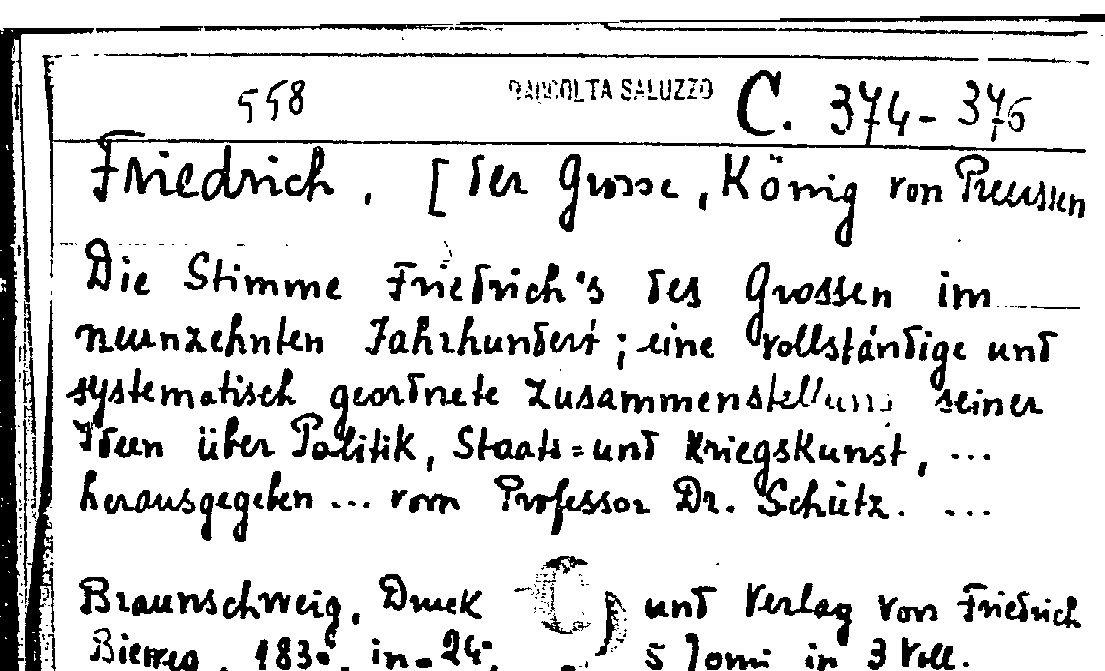 558 RACCOLTA SALUZZO C. 374-376
Friedrich, [der Grosse, König von Preussen
Die Stimme Friedrich's des Grossen im
neunzehnten Jahrhundert; eine vollständige und
systematisch geordnete Zusammenstellung seiner
Ideen über Politik, Staats= und Kriegskunst, ...
herausgegeben ... vom Professor Dr. Schütz. ...
Braunschweig, Druck und Verlag von Friedrich
in-24°, 5 Tomi in 3 Voll.